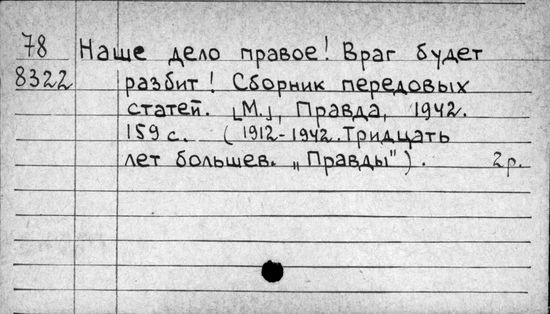 78 Наше дело правое! Враг будет
8322 разбит! Сборник передовых
статей. [М.], Правда, 1942.
159 с. (1912-1942. Тридцать
лет большев. „Правды"). 2р.